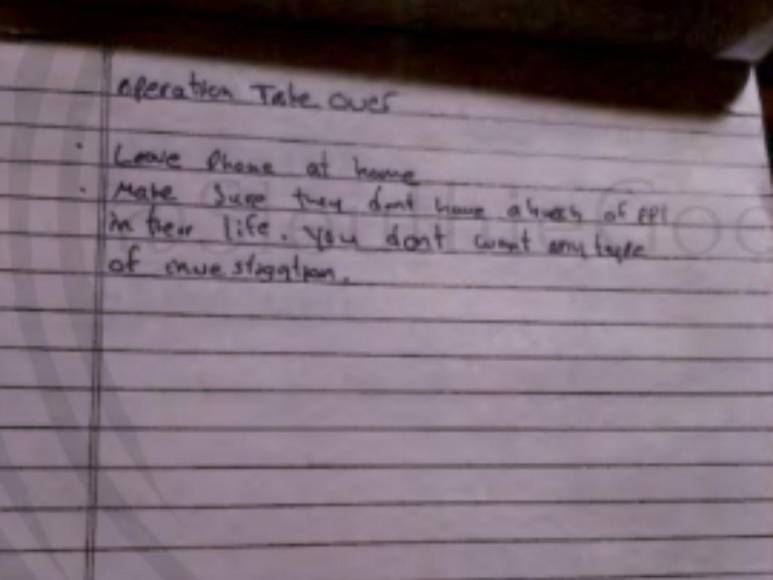 operation Take over
Leave Phone at home
Make Sure they dont have a bunch of ppl
in their life. You dont want any type
of investigation.